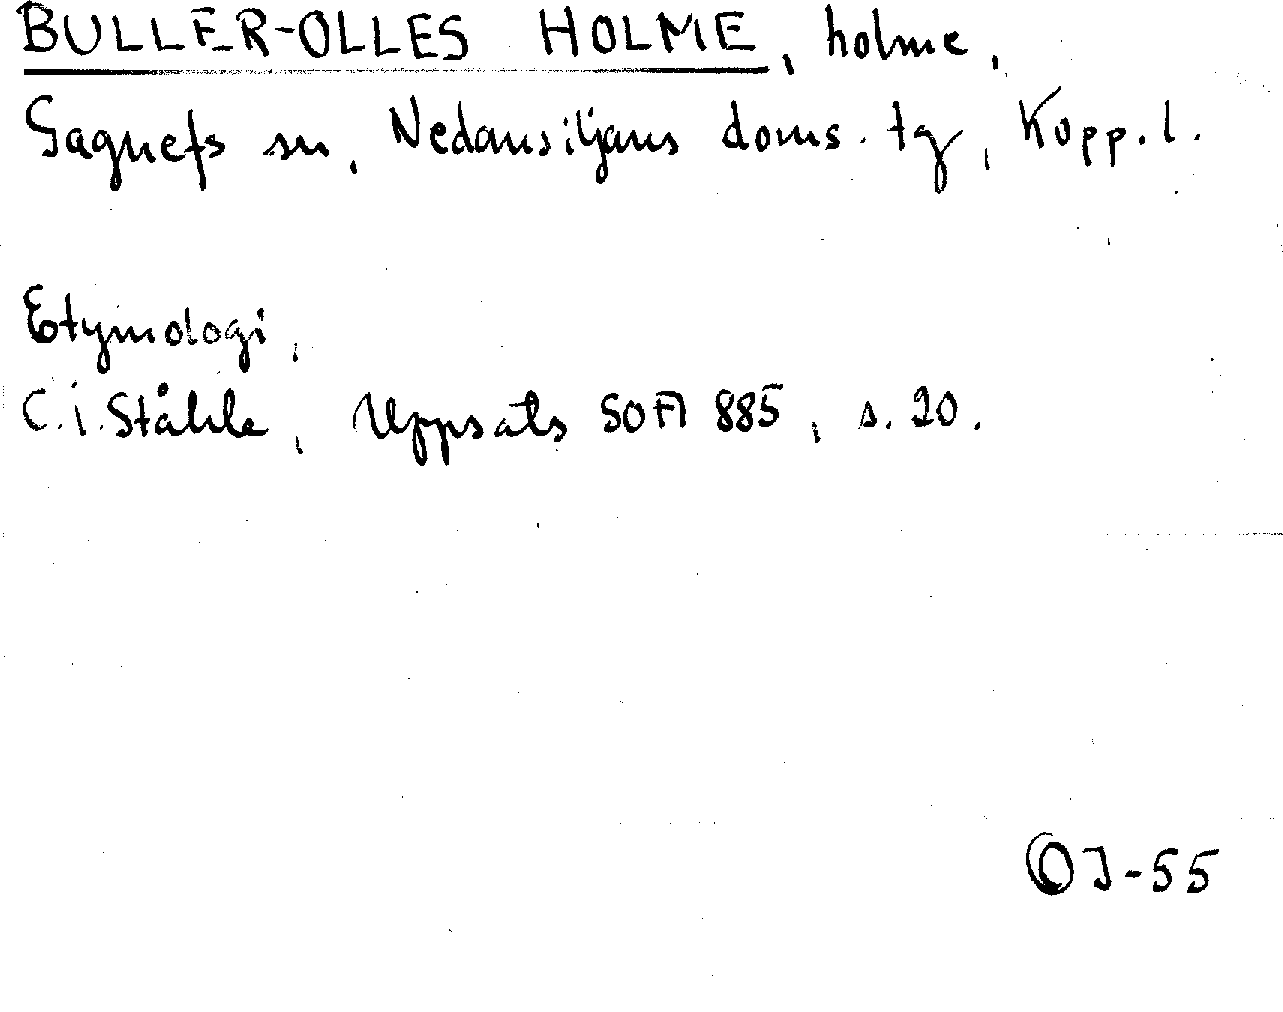 BULLER-OLLES HOLME, holme,
Gagnefs sn, Nedansiljans doms. tg, Kopp. l.
Etymologi,
C. I. Ståhle, Uppsats SOFI 885, s. 20.
OJ-55